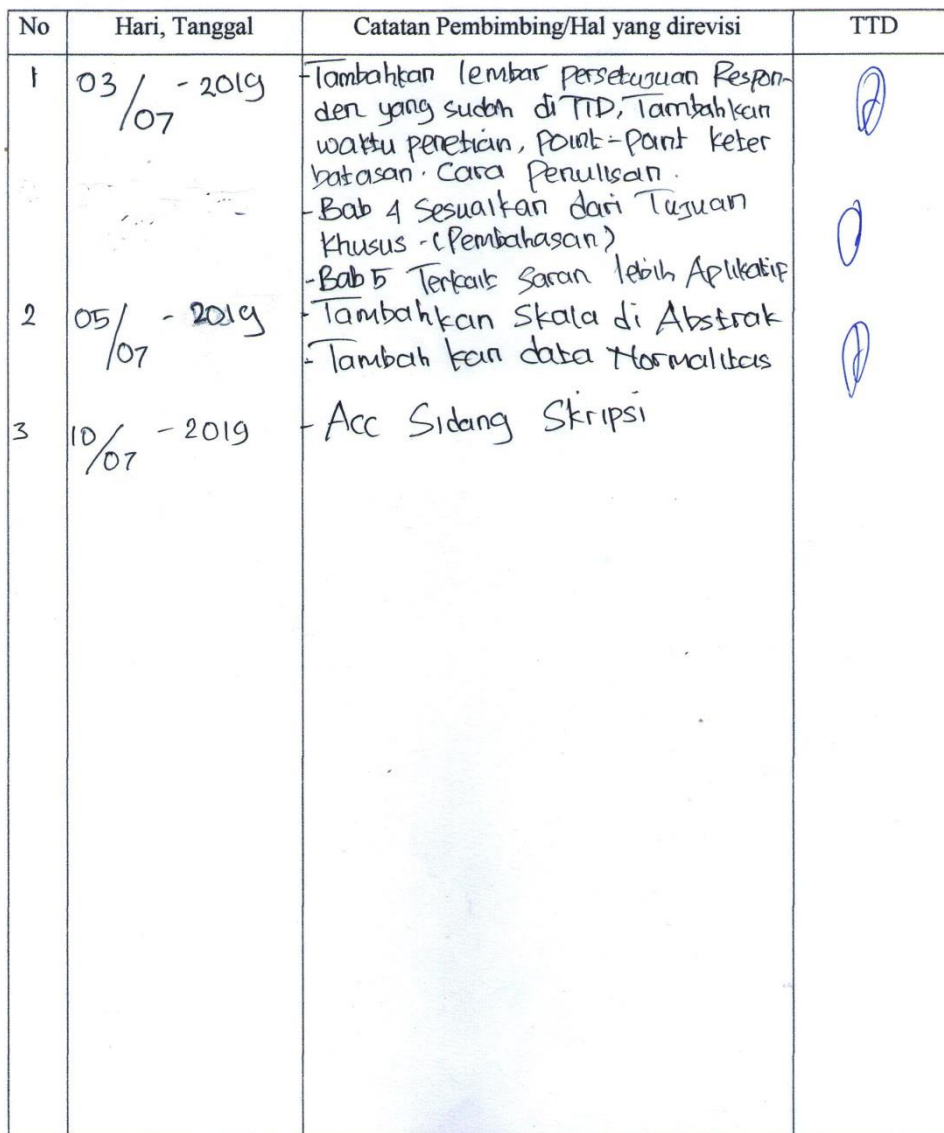 No Hari, Tanggal Catatan Pembimbing/Hal yang direvisi TTD
1 03/07 - 2019 -Tambahkan lembar persetujuan Respon-
den yang sudah di TTD, Tambahkan
waktu penetian, point-point keter
batasan. Cara Penulisan.
- Bab 4 Sesuaikan dari Tujuan
Khusus - (Pembahasan)
- Bab 5 Terkait Saran lebih Aplikatif
2 05/07 - 2019 - Tambahkan Skala di Abstrak
- Tambah kan data Normalitas
3 10/07 - 2019 - Acc Sidang Skripsi